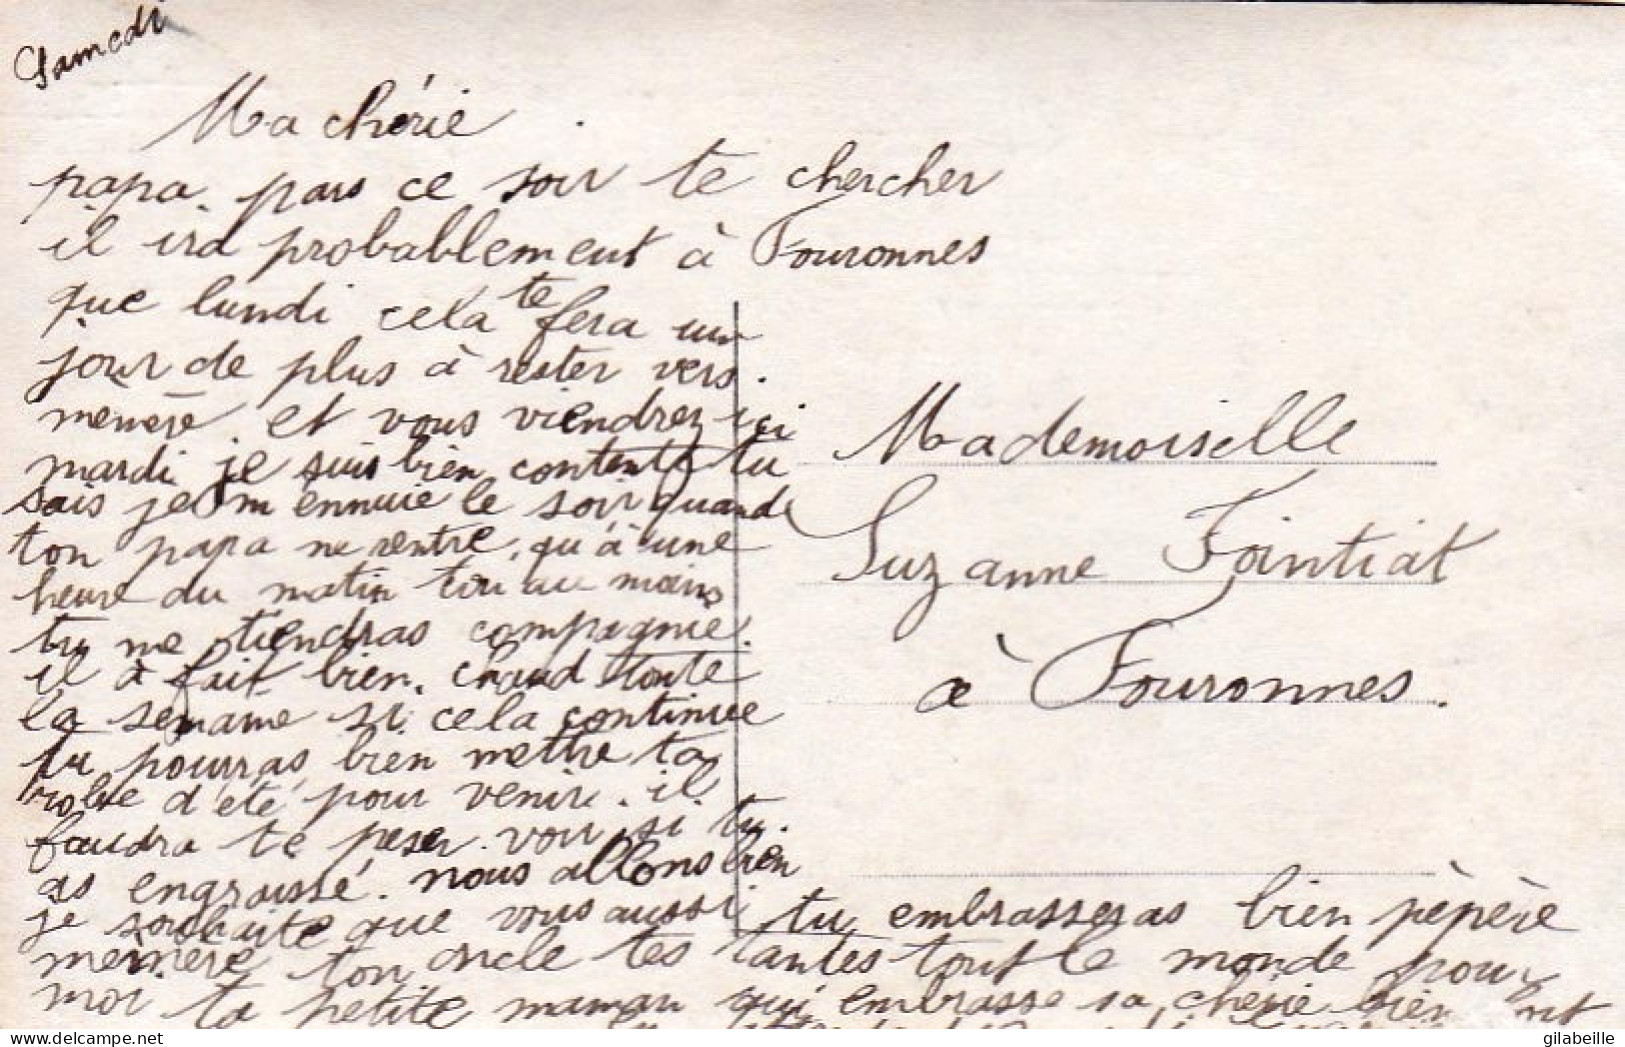 Samedi
Ma chérie
papa pars ce soir te chercher
il ira probablement à Fouronnes
que lundi cela te fera un
jour de plus à rester vers
mémère et vous viendrez ici
mardi je suis bien contente tu
sais je m ennuie le soir quand
ton papa ne rentre qu'à une
heure du matin toi au moins
tu me tiendras compagnie.
il a fait bien chaud toute
la semaine si cela continue
tu pourras bien mettre ta
robe d'été pour venir. il
faudra te peser voir si tu
as engraissé. nous allons bien
je souhaite que vous aussi tu embrasseras bien pèpère
mémère ton oncle tes tantes tout le monde pour
moi ta petite maman qui embrasse sa chérie bien
Mademoiselle
Suzanne Fointiat
à Fouronnes.
gilabeille